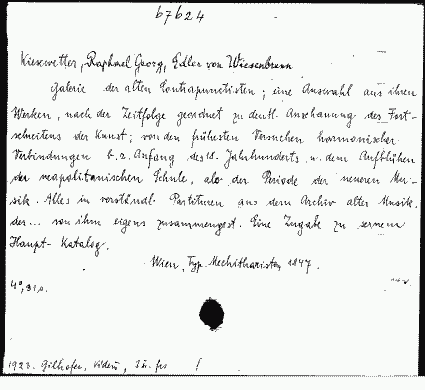 67624
Kiesewetter, Raphael Georg, Edler von Wiesenbrunn
Galerie der alten Contrapunctisten; eine Auswahl aus ihren
Werken, nach der Zeitfolge geordnet zu deutl. Anschauung des Fort-
schreitens der Kunst; von den frühesten Versuchen harmonischer
Verbindungen b. z. Anfang des 18. Jahrhunderts u. dem Aufblühen
der neapolitanischen Schule, als der Periode der neueren Mu-
sik. Alles in verständl. Partituren aus dem Archiv alter Musik,
des... von ihm eigens zusammengest. Eine Zugabe zu seinem
Haupt-Katalog.
Wien, Typ. Mechitharisten 1847.
4°,
1923. Gilhofer,